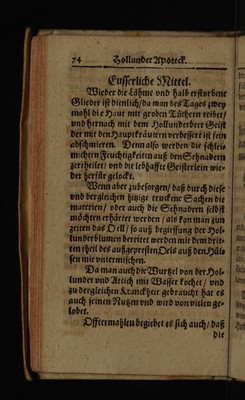 74 Hollunder Apoteck.
Eusserliche Mittel.
Wieder die Lähme und halb erstorbene
Glieder ist dienlich/da man des Tages zwey
mahl die Haut mit groben Tüchern reibet/
und hernach mit dem Hollunderbeer Geist
der mit den Hauptkräutern verbessert ist fein
abschmieren. Denn also werden die schlei-
michten Feuchtigkeiten auß den Sehnadern
zertheilet/ und die lebhaffte Geisterlein wie-
der herfür gelockt.
Wenn aber zubesorgen/ daß durch diese
und dergleichen hitzige truckene Sachen die
materien/ oder auch die Sehnadern selbst
möchten erhärtet werden/ als kan man zun
zeiten das Oell/ so auß begiessung der Hol-
lunderblumen bereitet werden mit dem drit-
ten theil des außgepresten Oels auß den Hül-
sen mit untermischen.
Da man auch die Wurtzel von der Hol-
lunder und Attich mit Wasser kochet/ und
zu dergleichen Kranckheit gebraucht hat es
auch seinen Nutzen und wird von vielen ge-
lobet.
Offtermahlen begiebet es sich auch/ daß
die